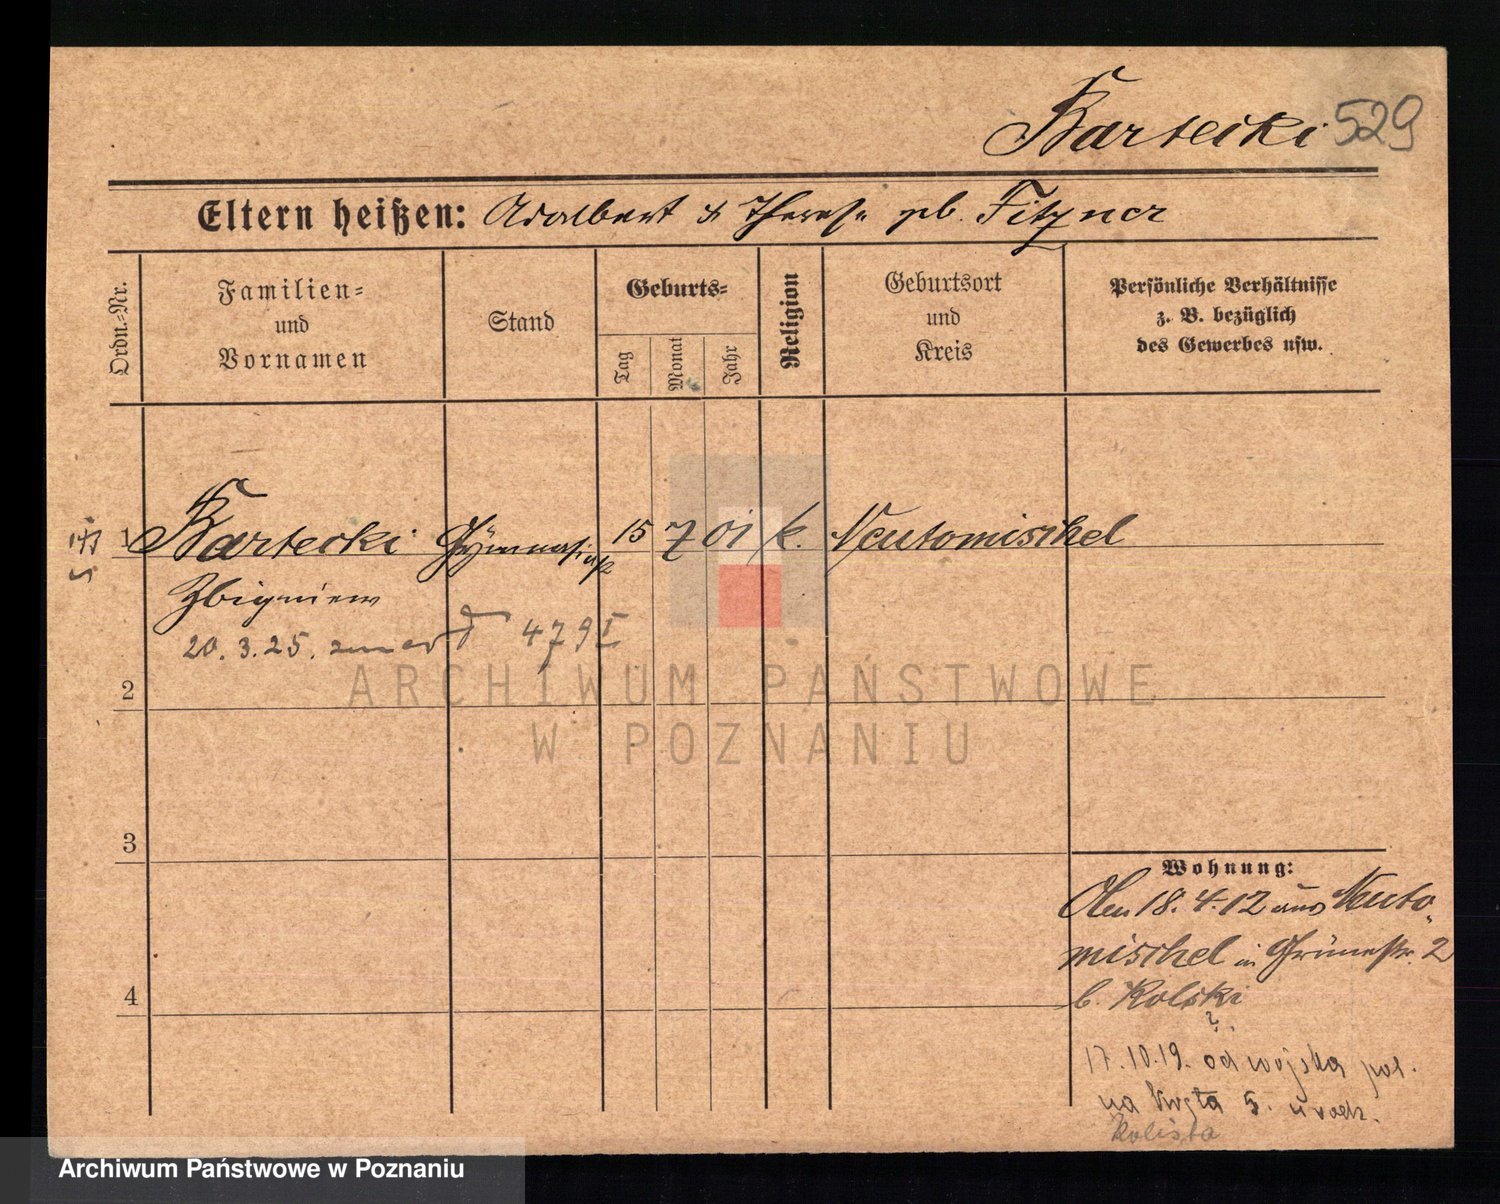 Bartecki 529
Eltern heißen: Adalbert & Therese geb. Fitzner
Ordn.-Nr.
Familien-
und
Vornamen
Stand
Geburts-
Tag
Monat
Jahr
Religion
Geburtsort
und
Kreis
Persönliche Verhältnisse
z. B. bezüglich
des Gewerbes usw.
1 Bartecki Gymnasiast 15 7 01 k. Neutomischel
Zbigniew
20.3.25. 479 I
2
ARCHIWUM PAŃSTWOWE
W POZNANIU
3
Wohnung:
18.4.12 aus Neuto-
mischel in Grünestr. 2
b. Rolski
?
4
17.10.19. od wojska pol.
na 5.
Archiwum Państwowe w Poznaniu